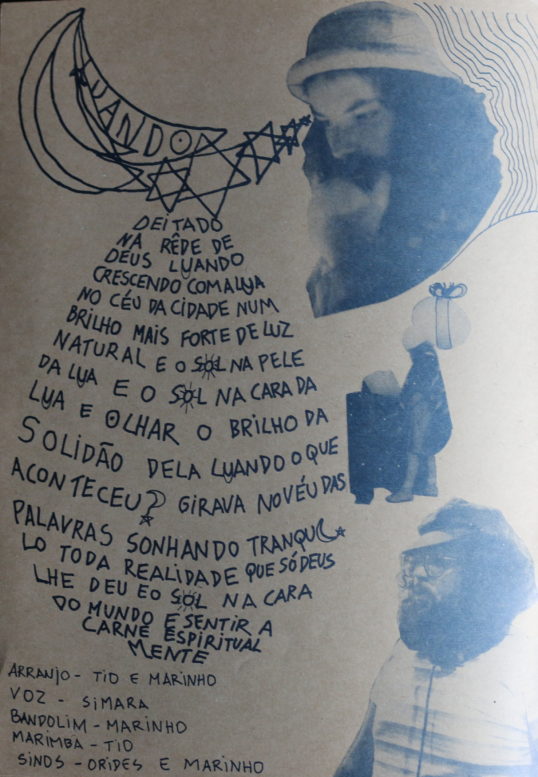 LUANDO
DEITADO
NA RÊDE DE
DEUS LUANDO
CRESCENDO COM A LUA
NO CÉU DA CIDADE NUM
BRILHO MAIS FORTE DE LUZ
NATURAL E O SOL NA PELE
DA LUA E O SOL NA CARA DA
LUA E OLHAR O BRILHO DA
SOLIDÃO DELA LUANDO O QUE
ACONTECEU? GIRAVA NO VÉU DAS
PALAVRAS SONHANDO TRANQUI
LO TODA REALIDADE QUE SÓ DEUS
LHE DEU E O SOL NA CARA
DO MUNDO E SENTIR A
CARNE ESPIRITUAL
MENTE
ARRANJO - TIO E MARINHO
VOZ - SIMARA
BANDOLIM - MARINHO
MARIMBA - TIO
SINOS - ORIDES E MARINHO